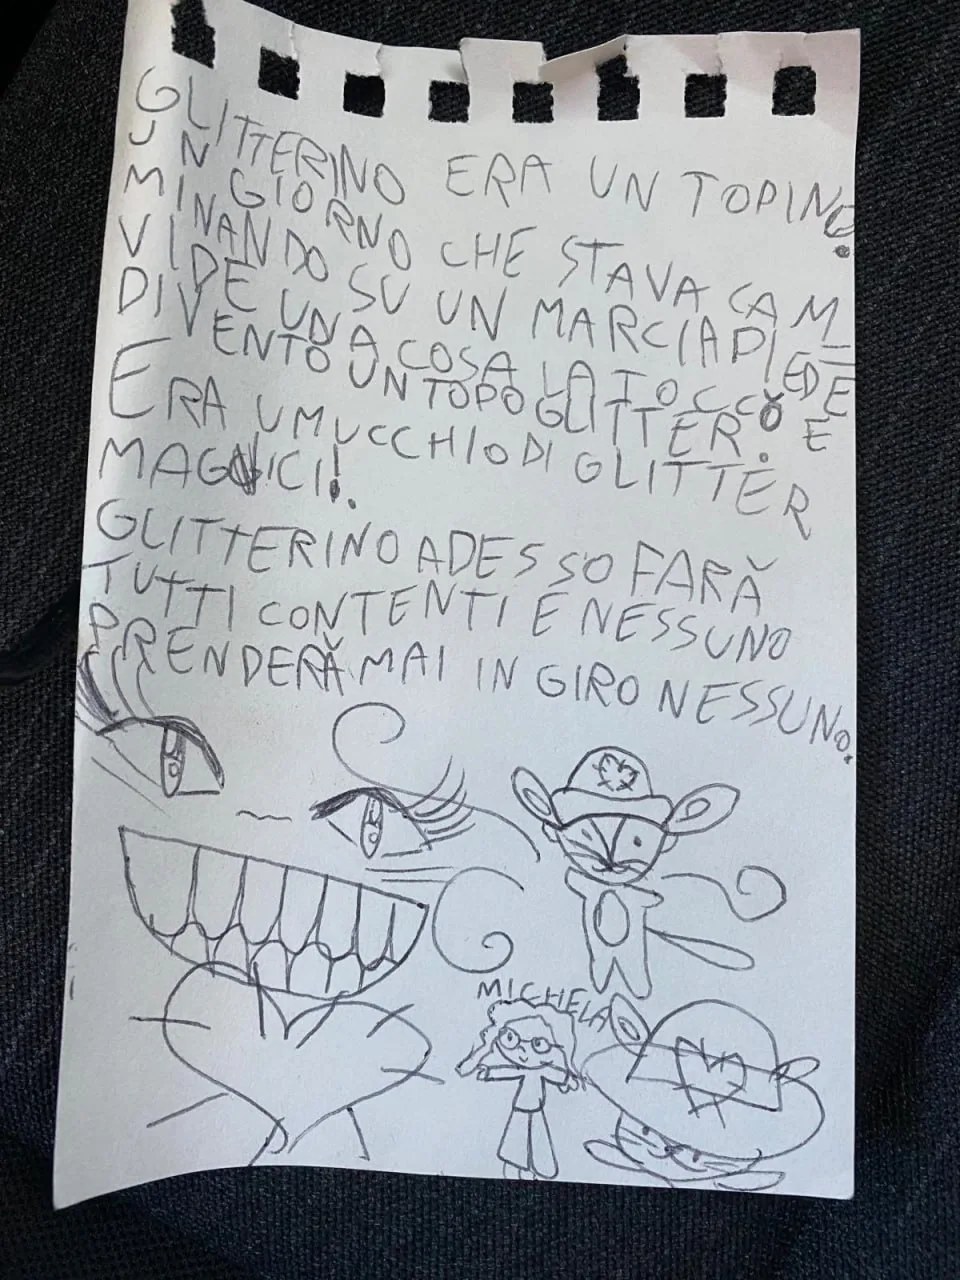 GLITTERINO ERA UN TOPINO.
UN GIORNO CHE STAVA CAM
MINANDO SU UN MARCIAPIEDE
VIDE UNA COSA LA TOCCÒ E
DIVENTÒ UN TOPO GLITTER.
ERA U MUCCHIO DI GLITTER
MAGICI!.
GLITTERINO ADESSO FARÀ
TUTTI CONTENTI E NESSUNO
PRENDERÀ MAI IN GIRO NESSUNO.
MICHELA